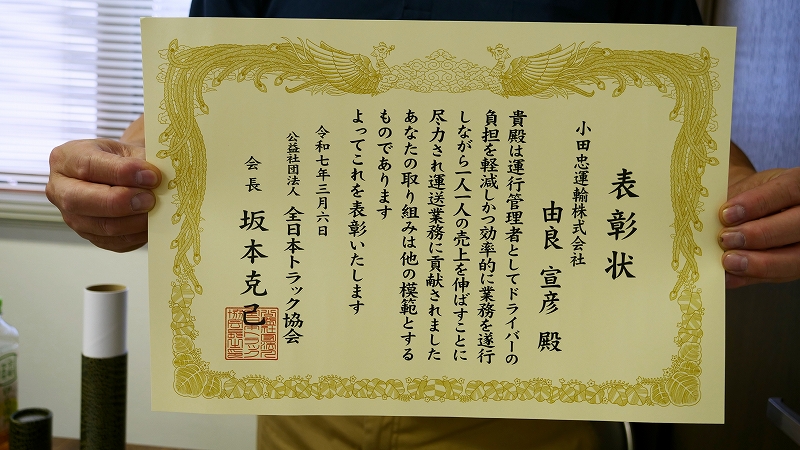 表彰状
小田忠運輸株式会社
由良 宣彦 殿
貴殿は運行管理者としてドライバーの
負担を軽減しかつ効率的に業務を遂行
しながら一人一人の売上を伸ばすことに
尽力され運送業務に貢献されました
あなたの取り組みは他の模範とする
ものであります
よってこれを表彰いたします
令和七年三月六日
公益社団法人 全日本トラック協会
会長 坂本克己